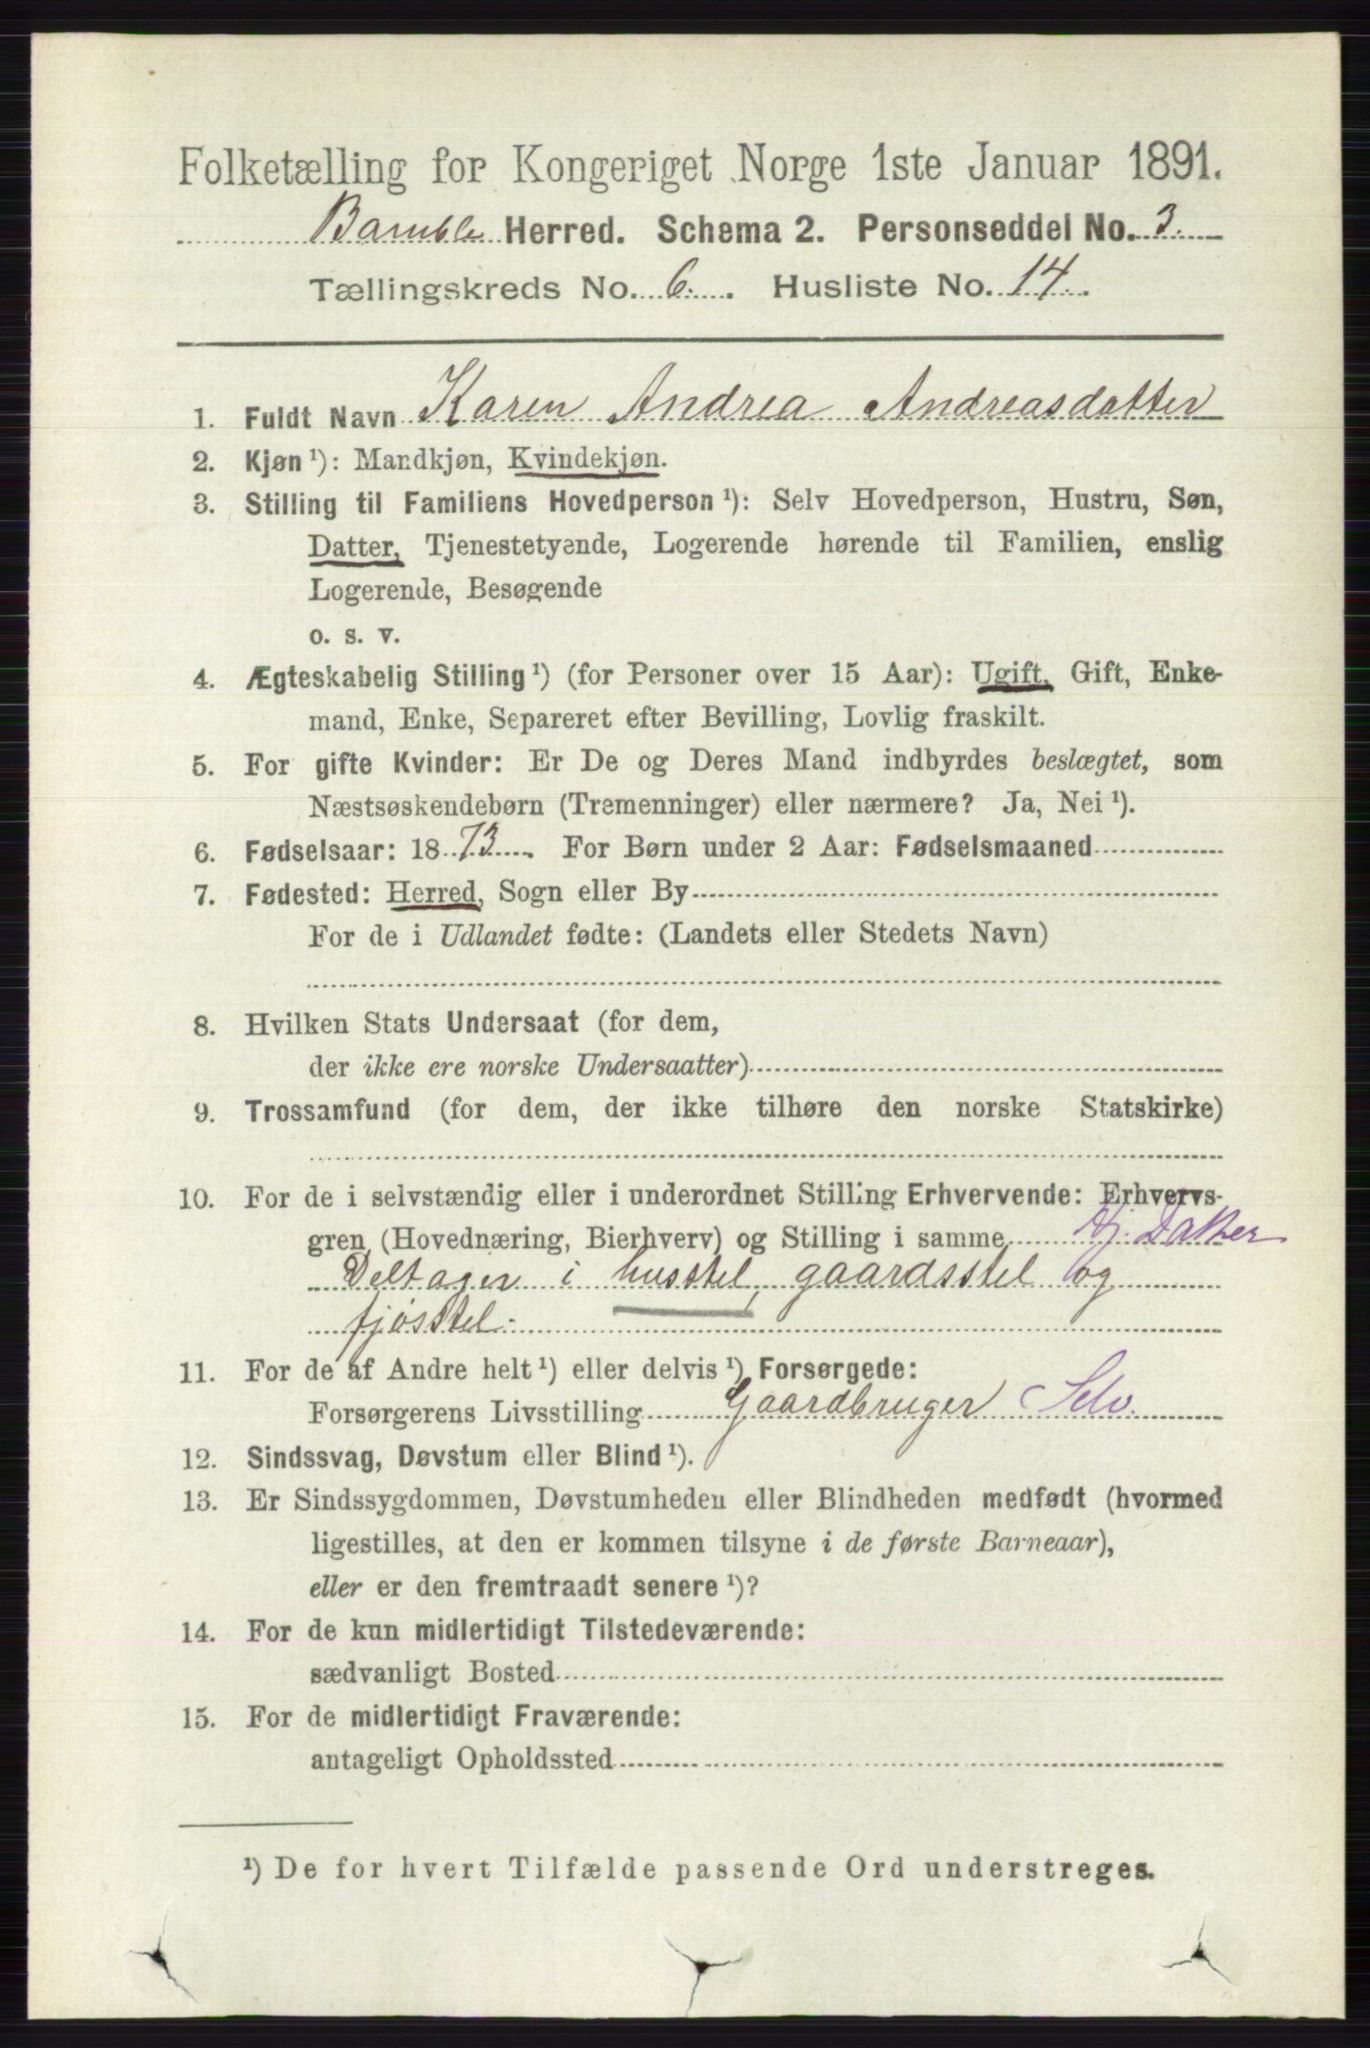 Folketælling for Kongeriget Norge 1ste Januar 1891.
Bamble Herred. Schema 2. Personseddel No. 3.
Tællingskreds No. 6. Husliste No. 14.
1. Fuldt Navn Karen Andrea Andreasdatter
2. Kjøn ¹): Mandkjøn, Kvindekjøn.
3. Stilling til Familiens Hovedperson ¹): Selv Hovedperson, Hustru, Søn,
Datter, Tjenestetyende, Logerende hørende til Familien, enslig
Logerende, Besøgende
o. s. v.
4. Ægteskabelig Stilling ¹) (for Personer over 15 Aar): Ugift, Gift, Enke-
mand, Enke, Separeret efter Bevilling, Lovlig fraskilt.
5. For gifte Kvinder: Er De og Deres Mand indbyrdes beslægtet, som
Næstsøskendebørn (Tremenninger) eller nærmere? Ja, Nei ¹).
6. Fødselsaar: 1873. For Børn under 2 Aar: Fødselsmaaned
7. Fødested: Herred, Sogn eller By
For de i Udlandet fødte: (Landets eller Stedets Navn)
8. Hvilken Stats Undersaat (for dem,
der ikke ere norske Undersaatter)
9. Trossamfund (for dem, der ikke tilhøre den norske Statskirke)
10. For de i selvstændig eller i underordnet Stilling Erhvervende: Erhvervs-
gren (Hovednæring, Bierhverv) og Stilling i samme Hj. Datter
Deltager i husstel, gaardsstel og
fjøsstel.
11. For de af Andre helt ¹) eller delvis ¹) Forsørgede:
Forsørgerens Livsstilling Gaardbruger Selv.
12. Sindssvag, Døvstum eller Blind ¹).
13. Er Sindssygdommen, Døvstumheden eller Blindheden medfødt (hvormed
ligestilles, at den er kommen tilsyne i de første Barneaar),
eller er den fremtraadt senere ¹)?
14. For de kun midlertidigt Tilstedeværende:
sædvanligt Bosted
15. For de midlertidigt Fraværende:
antageligt Opholdssted
¹) De for hvert Tilfælde passende Ord understreges.